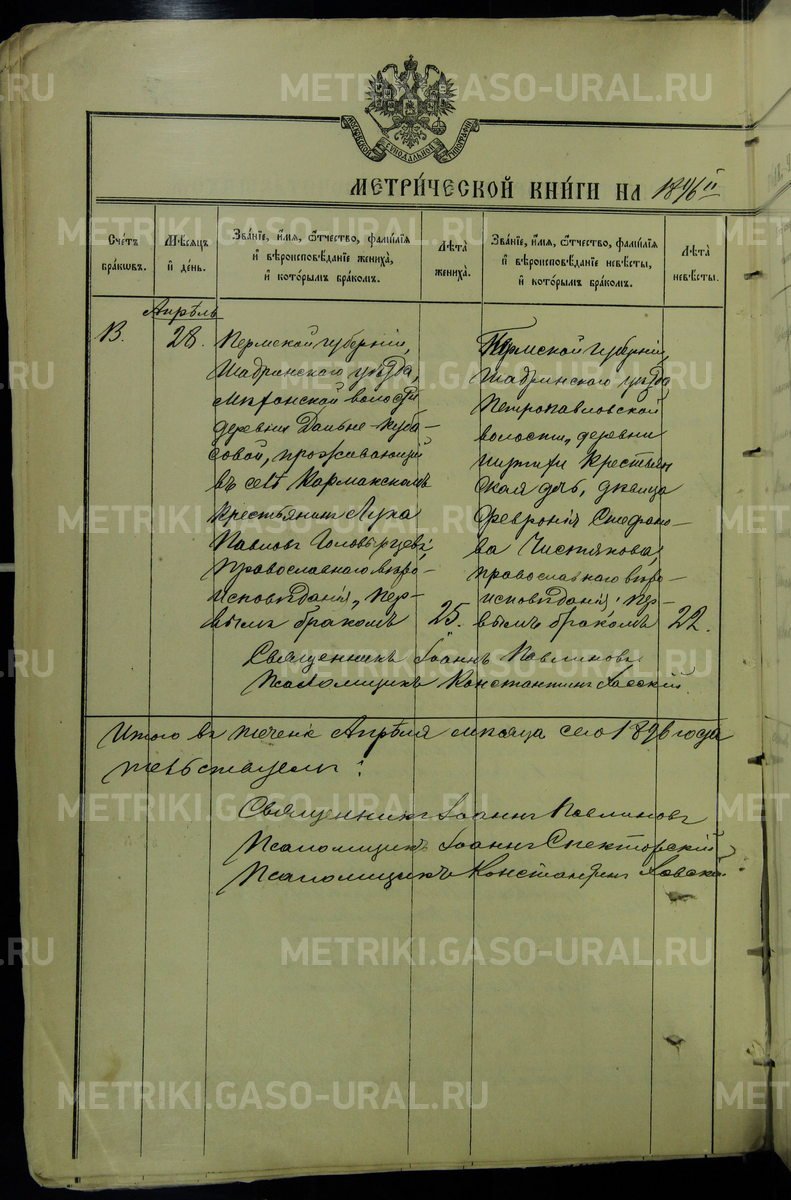 МОСКОВСКОЙ СѴНОДАЛЬНОЙ ТИПОГРАФІИ
МЕТРИ́ЧЕСКОЙ КНИ́ГИ НА 18"96"
Сче́тъ бра́кѡвъ.
Мѣ́сѧцъ и҆ де́нь.
Зва́нїе, и҆́мѧ, ѻ҆́тчество, фами́лїѧ и҆ вѣроисповѣ́данїе жениха̀, и҆ кото́рымъ бра́комъ.
Лѣ́та жениха̀.
Зва́нїе, и҆́мѧ, ѻ҆́тчество, фами́лїѧ и҆ вѣроисповѣ́данїе невѣ́сты, и҆ кото́рымъ бра́комъ.
Лѣ́та невѣ́сты.
Апрѣль
13.
28.
Пермской губерніи,
Шадринскаго уѣзда,
волости
деревни Дальне-Куба-
совой, проживающій
въ селѣ Кармакскомъ
крестьянинъ Лука
Павловъ Головырцевъ,
православнаго вѣро-
исповѣданія, пер-
вымъ бракомъ
25.
Пермской губерніи,
Шадринскаго уѣзда
Петропавловской
волости, деревни
крестьян
ская дчь, дѣвица
Февронія Стефано-
ва Чистякова,
православнаго вѣро-
исповѣданія, пер-
вымъ бракомъ
22.
Священникъ Іоаннъ Павлиновъ
Псаломщикъ Константинъ
Итого въ теченіе Апрѣля мѣсяца сего 1896 года
Священникъ Іоаннъ Павлиновъ
Псаломщикъ Іоаннъ Спекторскій
Псаломщикъ Константинъ
METRIKI.GASO-URAL.RU